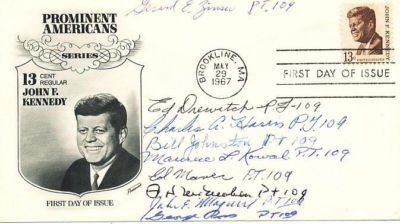 Gerard E. Zinser PT. 109
PROMINENT
AMERICANS
SERIES
13 CENT
REGULAR
JOHN F.
KENNEDY
FIRST DAY OF ISSUE
BROOKLINE, MA
MAY
29
1967
FIRST DAY OF ISSUE
JOHN F. KENNEDY
13c
UNITED STATES
Ed Drewitch PT-109
Charles A. Harris P.T. 109
Bill Johnston Pt 109
Maurice L Kowal P.T. 109
Ed Mauer P.T. 109
pt 109
John E. Maguire PT 109
George Ross PT 109